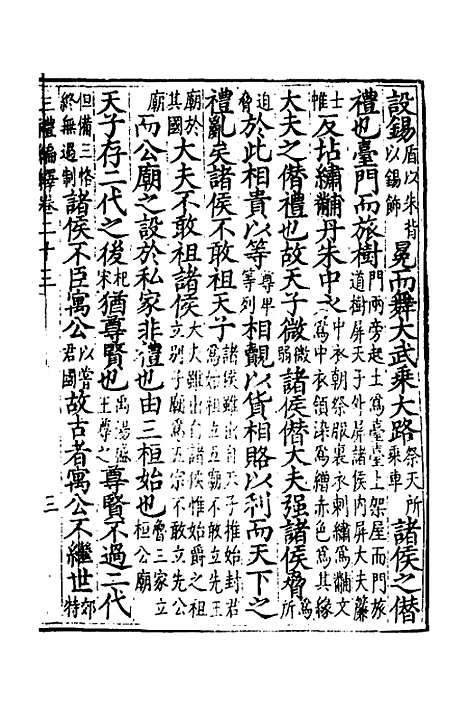 設錫盾以朱背以錫飾冕而舞大武乘大路祭天所乘車諸侯之僭
禮也臺門而旅樹門兩旁起土爲臺臺上架屋而門旅道樹屏天子外屏諸侯內屏大夫簾
士帷反坫繡黼丹朱中之中衣朝祭服裏衣刺繡爲黼文爲中衣領染爲繒赤色爲其緣
大夫之僭禮也故天子微微弱諸侯僭大夫强諸侯脅爲所
迫脅於此相貴以等尊卑等列相覿以貨相賂以利而天下之
禮亂矣諸侯不敢祖天子諸侯雖出自天子推始封君爲始祖不敢立先王
廟於其國大夫不敢祖諸侯大夫雖出自諸侯惟始爵之祖立別子廟爲五宗不敢立先公
廟而公廟之設於私家非禮也由三桓始也魯三家立桓公廟
天子存二代之後杞宋猶尊賢也禹湯盛王尊之尊賢不過二代
但備三恪終無過制諸侯不臣寓公以嘗君國故古者寓公不繼世郊特
三禮編繹卷二十三
三